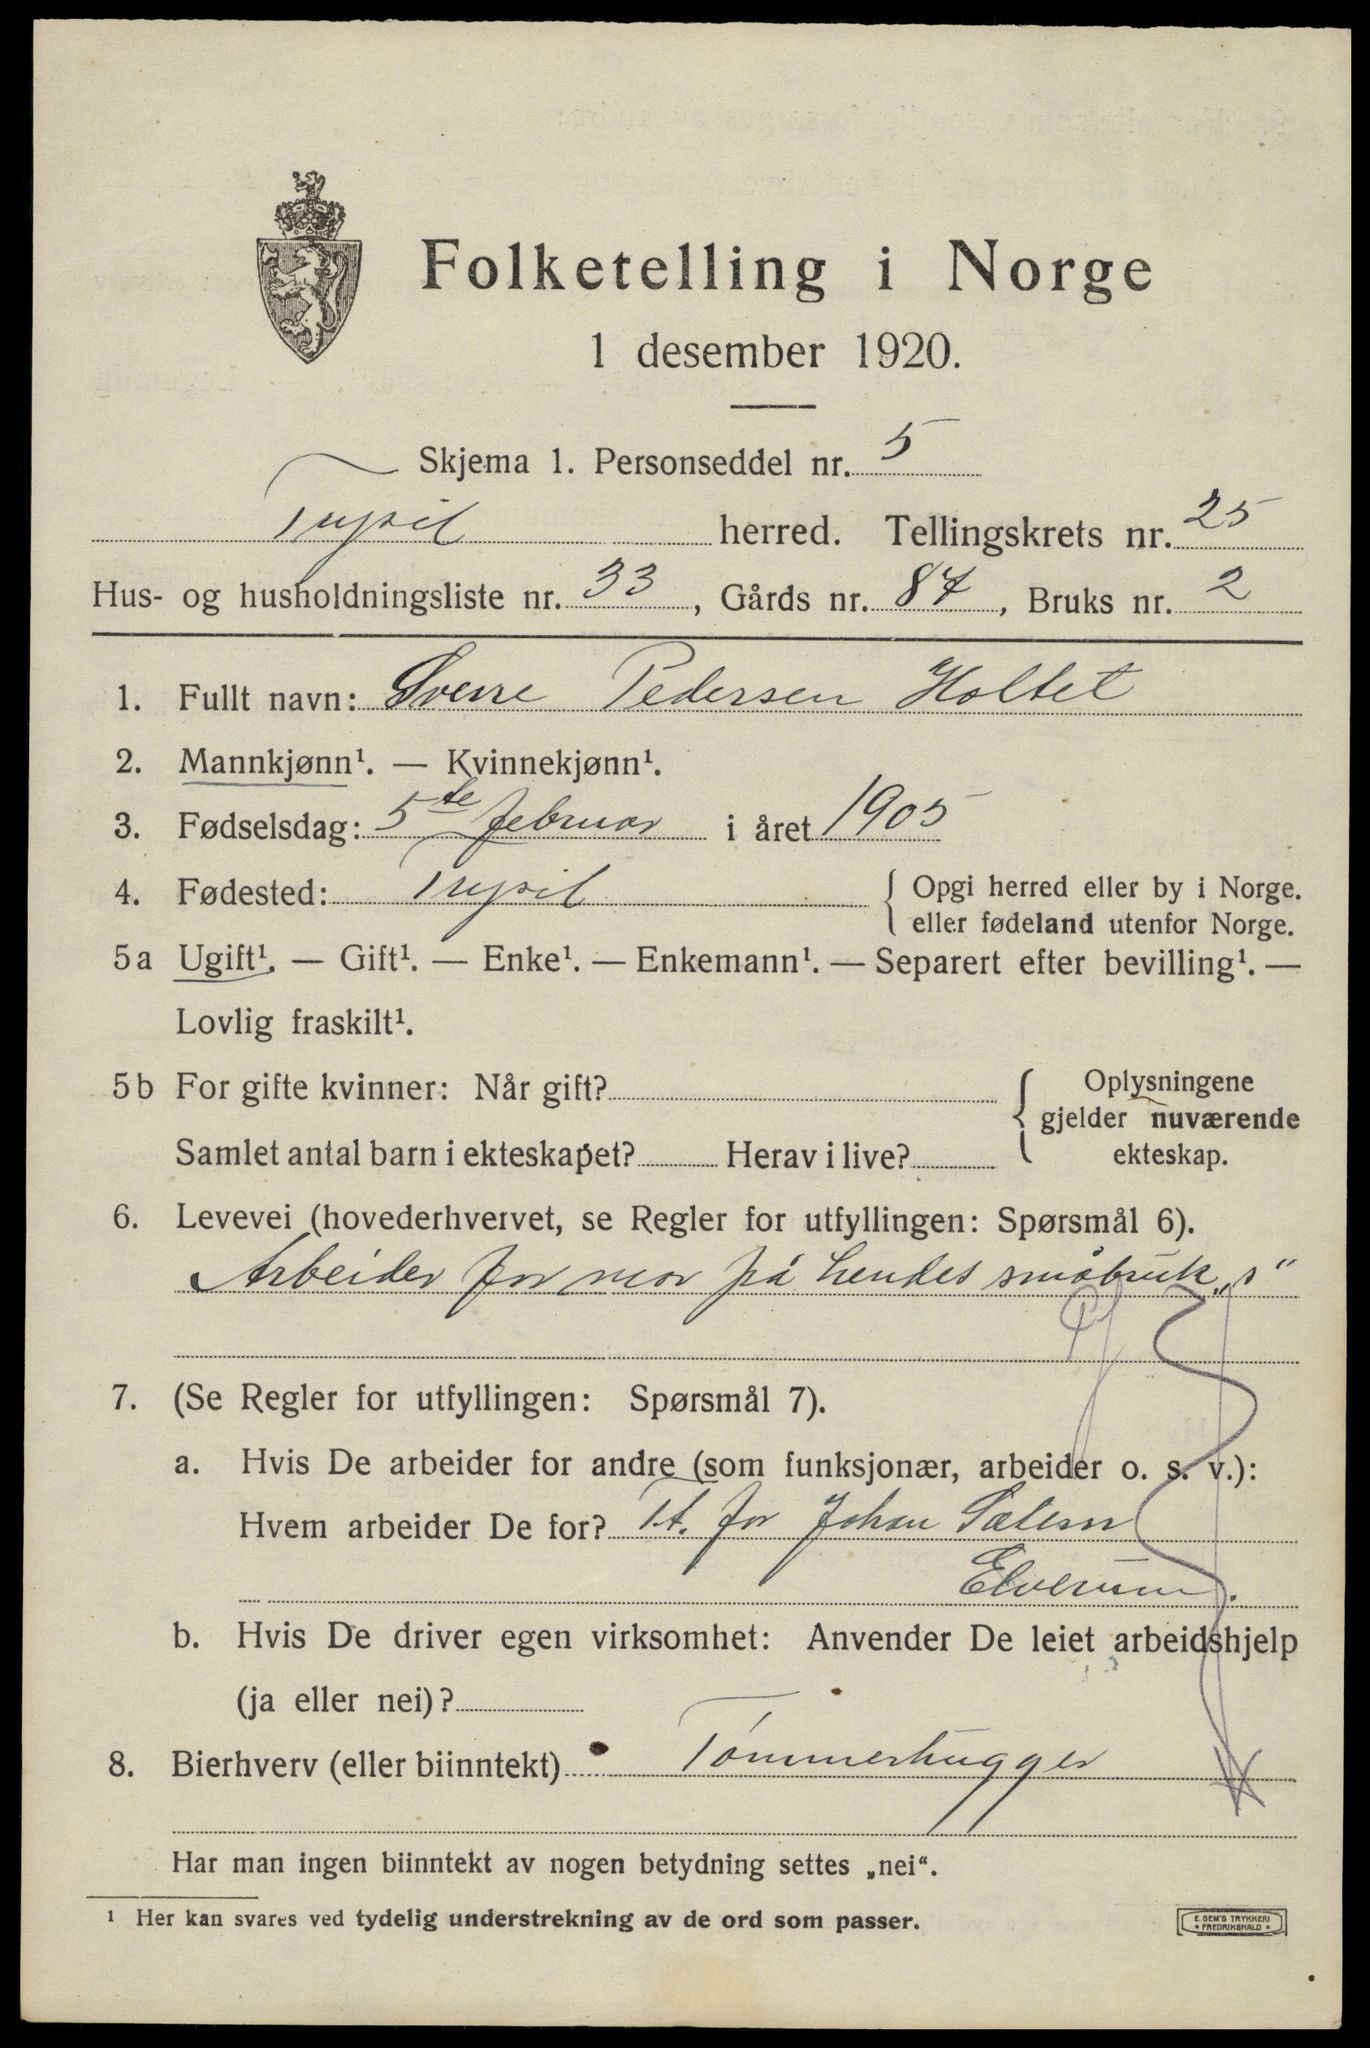 Folketelling i Norge
1 desember 1920.
Skjema 1. Personseddel nr. 5
Trysil herred. Tellingskrets nr. 25
Hus- og husholdningsliste nr. 33, Gårds nr. 87, Bruks nr. 2
1. Fullt navn: Sverre Pedersen Holtet
2. Mannkjønn¹. — Kvinnekjønn¹.
3. Fødselsdag: 5te februar i året 1905
4. Fødested: Trysil { Opgi herred eller by i Norge.
eller fødeland utenfor Norge.
5a Ugift¹. — Gift¹. — Enke¹. — Enkemann¹. — Separert efter bevilling¹. —
Lovlig fraskilt¹.
5b For gifte kvinner: Når gift? { Oplysningene
gjelder nuværende
Samlet antal barn i ekteskapet? Herav i live? ekteskap.
6. Levevei (hovederhvervet, se Regler for utfyllingen: Spørsmål 6).
Arbeider for mor på hendes småbruk „s"
7. (Se Regler for utfyllingen: Spørsmål 7).
a. Hvis De arbeider for andre (som funksjonær, arbeider o. s. v.):
Hvem arbeider De for? Tt. for Johan
Elverum.
b. Hvis De driver egen virksomhet: Anvender De leiet arbeidshjelp
(ja eller nei)?
8. Bierhverv (eller biinntekt) Tømmerhugger
Har man ingen biinntekt av nogen betydning settes „nei".
¹ Her kan svares ved tydelig understrekning av de ord som passer.
E. SEM'S TRYKKERI
FREDRIKSHALD